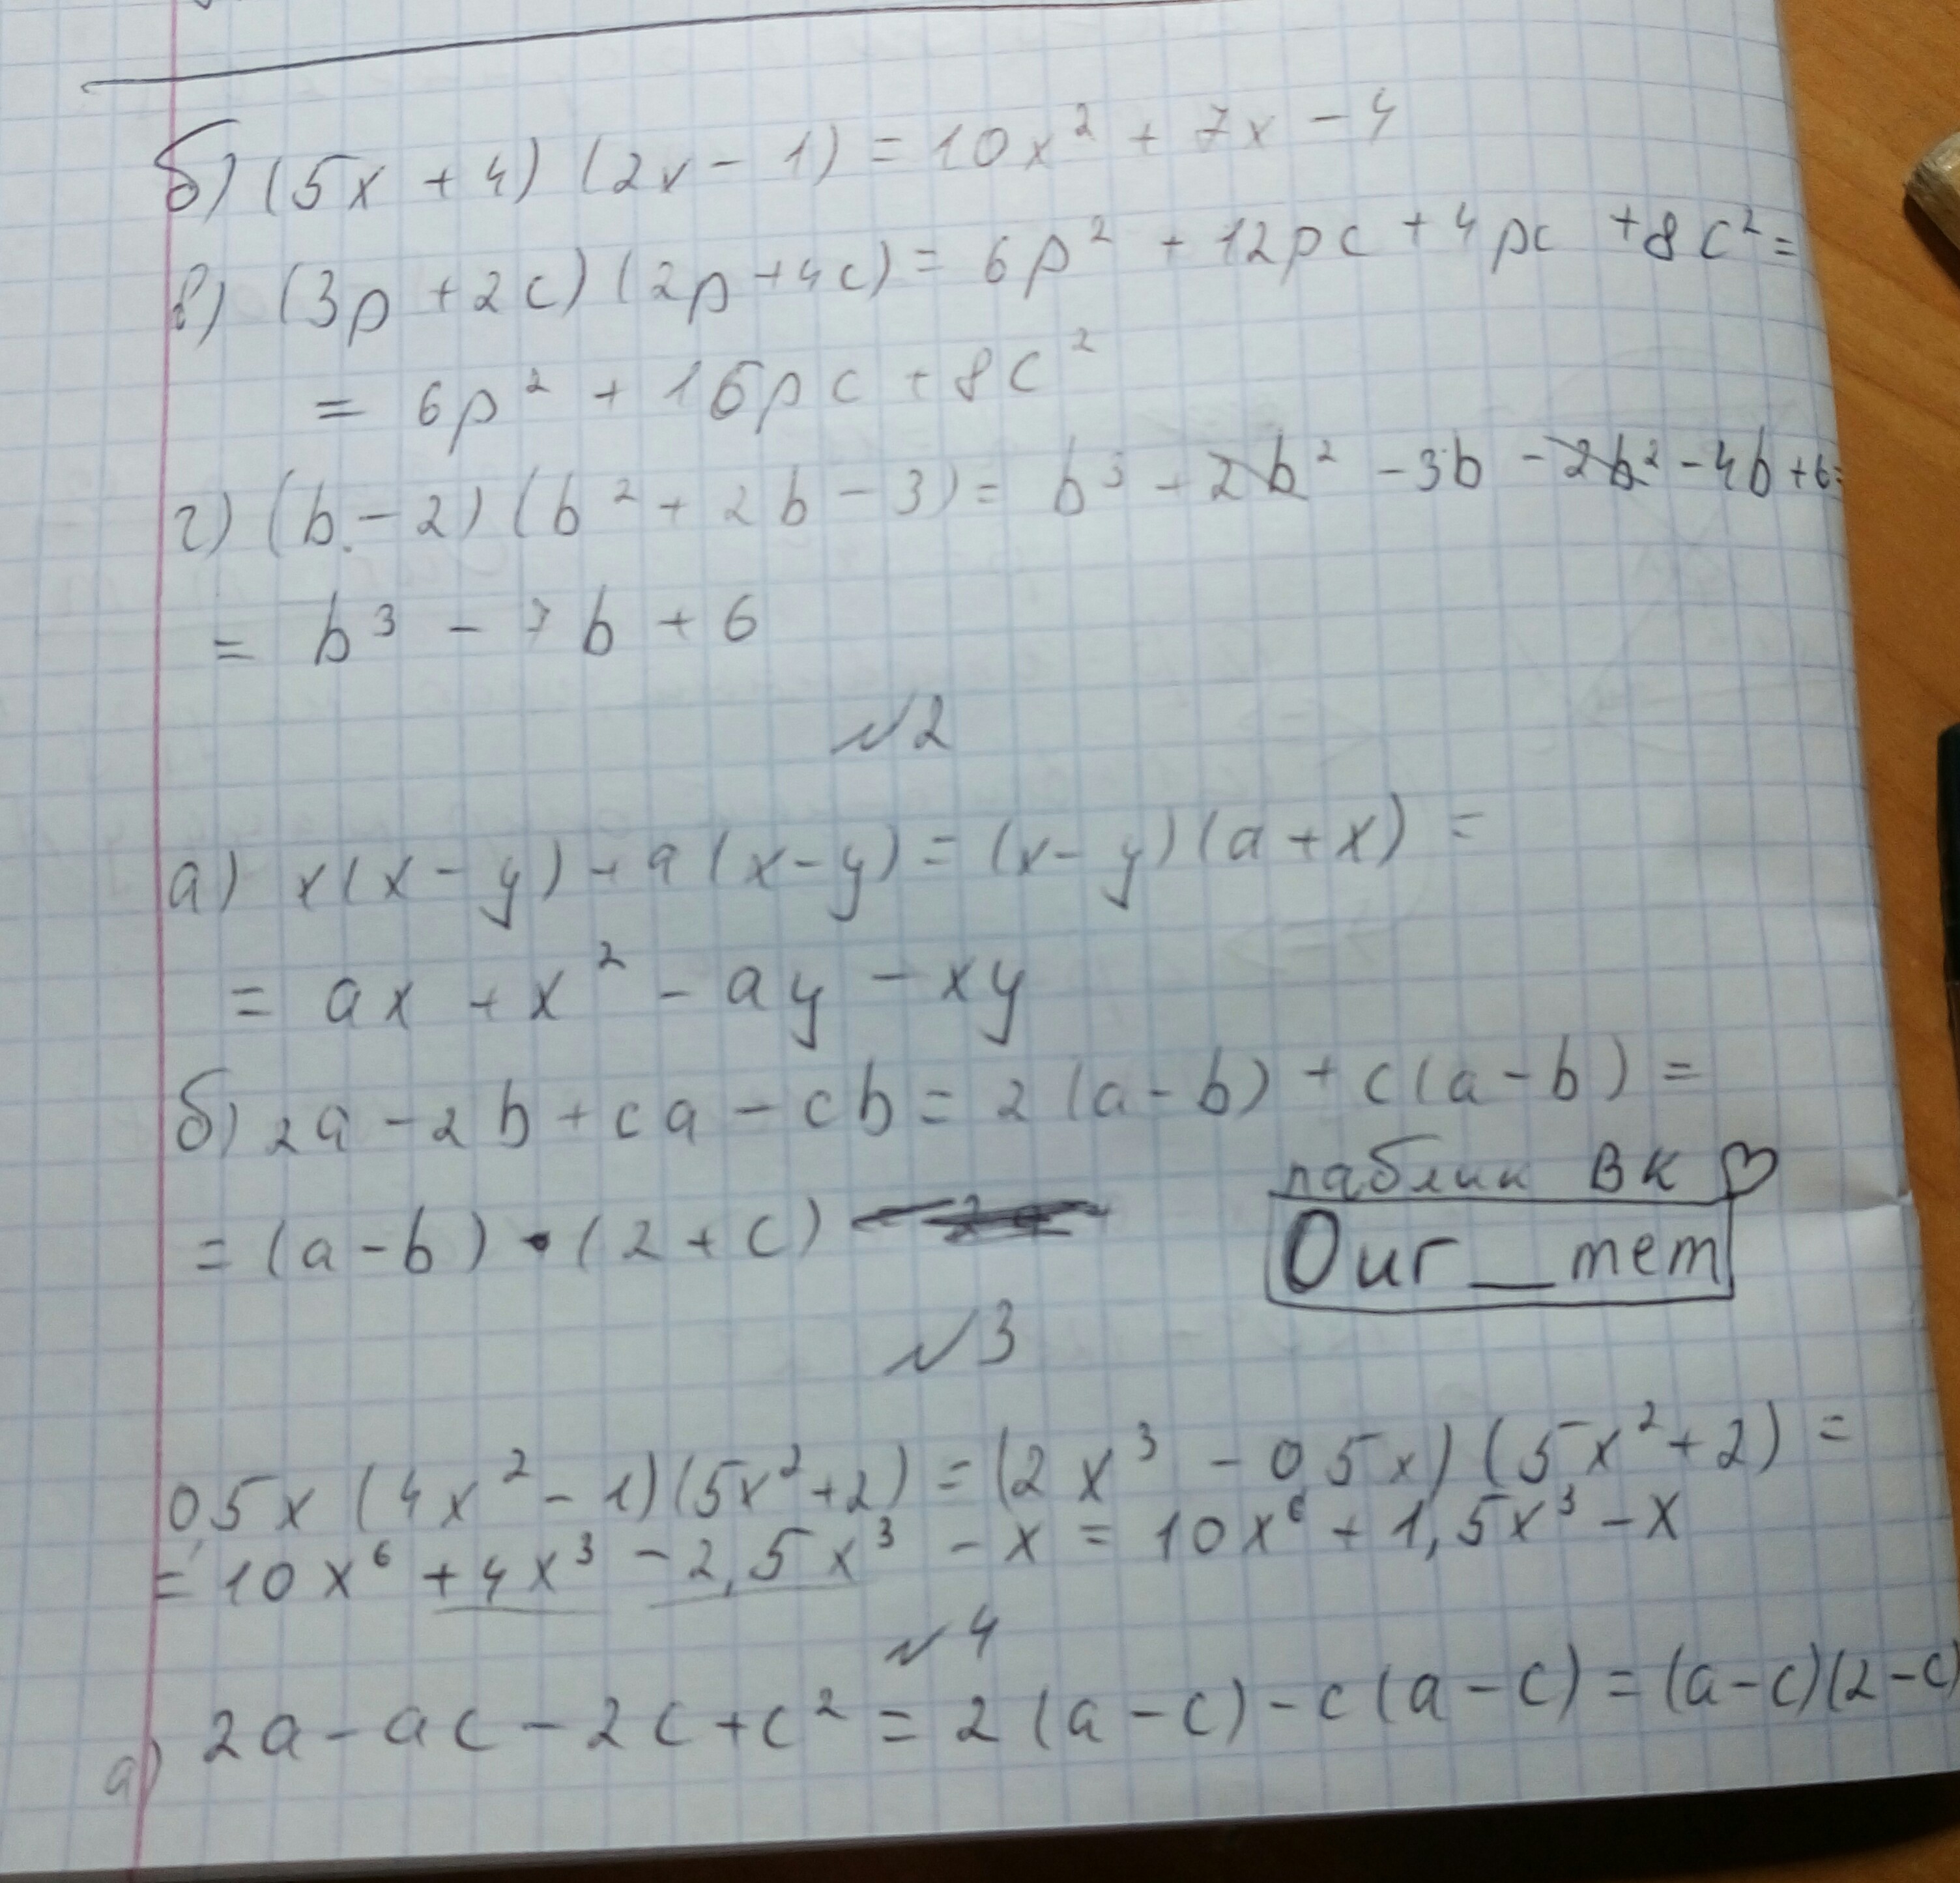 б) (5x + 4) (2x - 1) = 10x² + 7x - 4
в) (3p + 2c) (2p + 4c) = 6p² + 12pc + 4pc + 8c² =
= 6p² + 16pc + 8c²
г) (b - 2) (b² + 2b - 3) = b³ + 2b² - 3b - 2b² - 4b + 6 =
= b³ - 7b + 6
№2
а) x(x - y) + a(x - y) = (x - y)(a + x) =
= ax + x² - ay - xy
б) 2a - 2b + ca - cb = 2(a - b) + c(a - b) =
= (a - b) • (2 + c)
паблик ВК ♡
Our__mem
№3
0,5x (4x² - 1)(5x² + 2) = (2x³ - 0,5x) (5x² + 2) =
= 10x⁶ + 4x³ - 2,5x³ - x = 10x⁶ + 1,5x³ - x
№4
а) 2a - ac - 2c + c² = 2(a - c) - c(a - c) = (a - c)(2 - c)